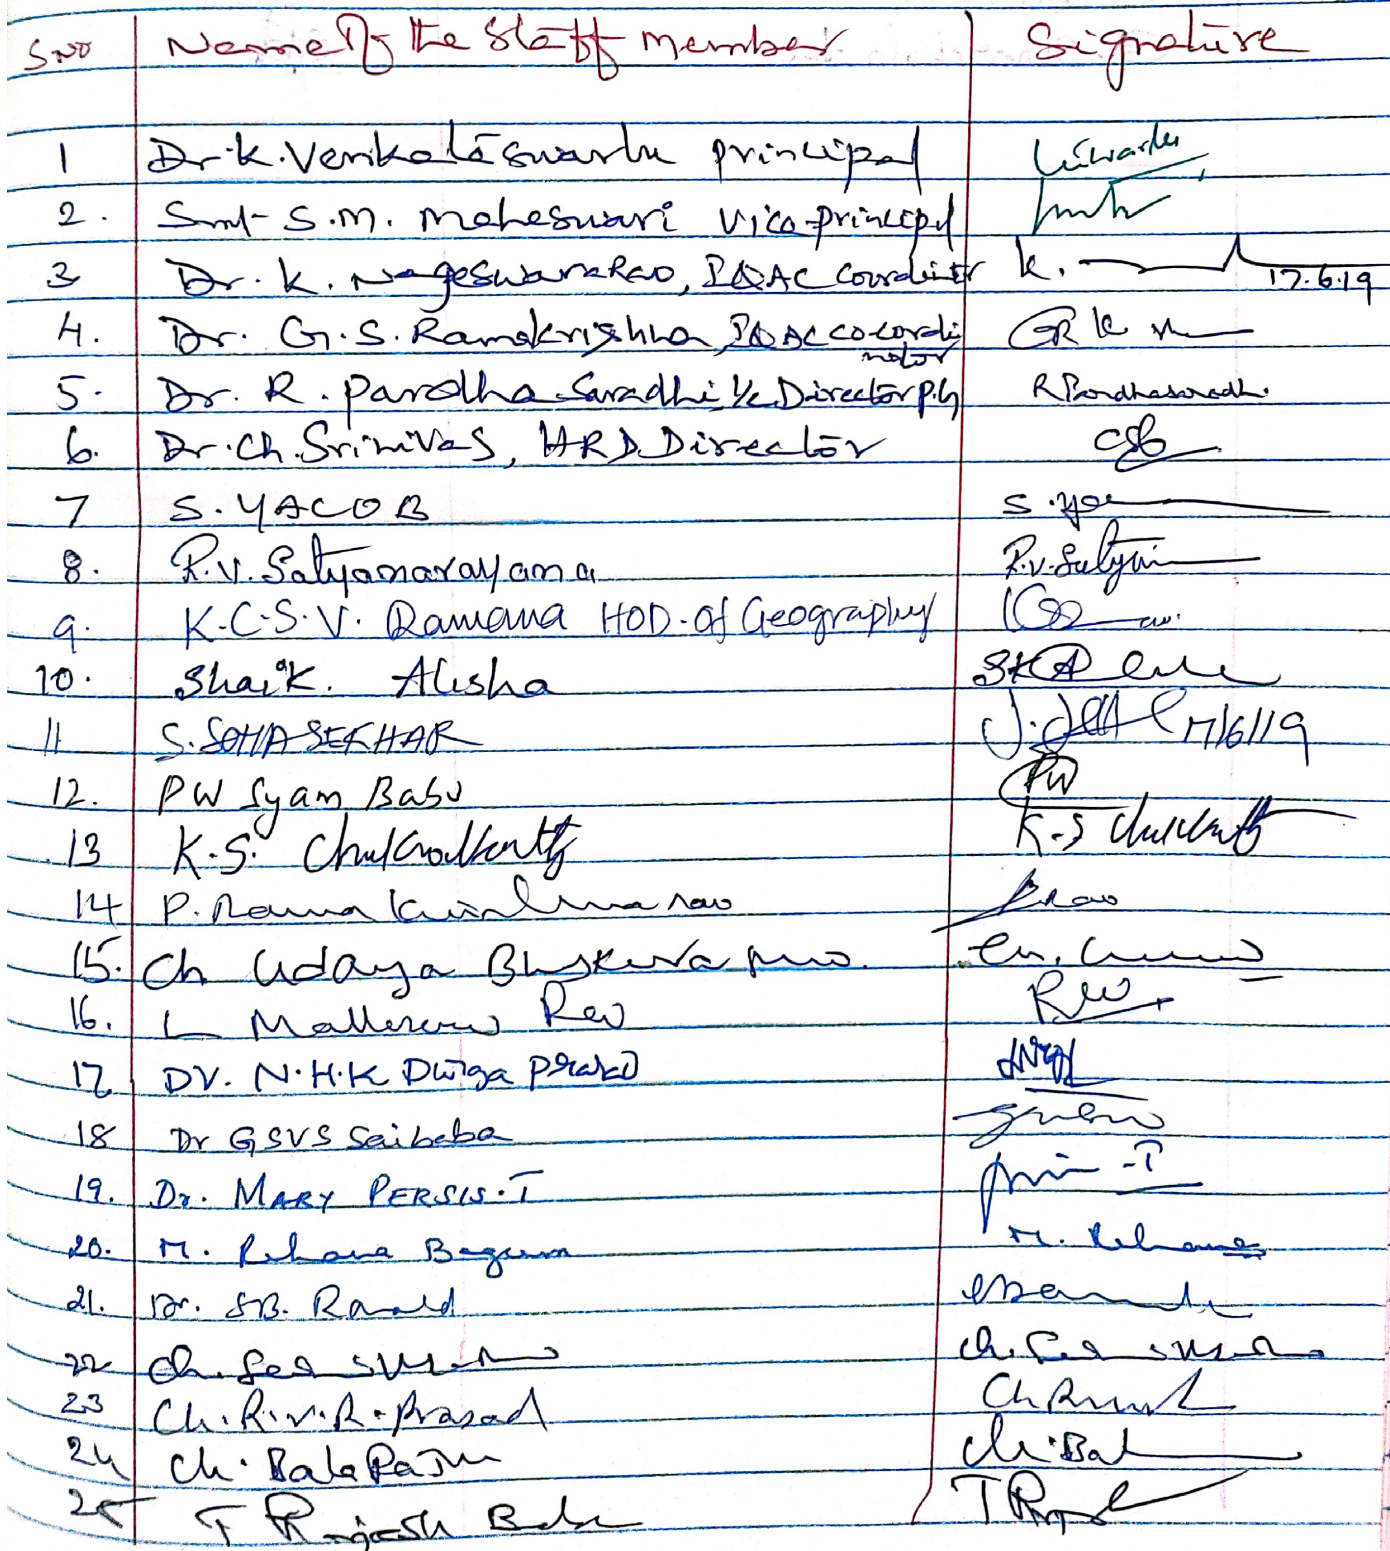 S.NO Name Of the Staff member Signature
1 Dr. K. Venkateswarlu principal
2. Smt S.M. Maheswari Vice-principal
3 Dr. K. NageswaraRao, IQAC Coordinator K. 17.6.19
4. Dr. G.S. Ramakrishna, IQAC co-cordi GRK
nator
5. Dr. R. Pardha Saradhi, I/c Director P.G R Pardhasaradhi
6. Dr. Ch. Srinivas, HRD Director
7 S. YACOB S. Ya
8. R.V. Satyanarayana R.V. Satyan
9. K.C.S.V. Ramana HOD. of Geography
10. Shaik. Alisha SK A
11 S. SOMA SEKHAR 17/6/19
12. PW Syam Babu PW
13 K.S. Chukravarthy K.S
14 P. Rama Krishna rao Rao
15. Ch Udaya Bhaskara Ch.
16. L Malleswara Rao Rao
17 DV. N.H.K Durga Prasad
18 Dr GSVS Saibaba
19. Dr. MARY PERSIS. T
20. M. Rehana Begum M. Rehana
21. Dr. S.B. Ronald
22 Ch. Ch.
23 Ch. R.V.R. Prasad Ch
24 Ch. Bala Raju Ch. Bal
25 T Rajesh Babu T